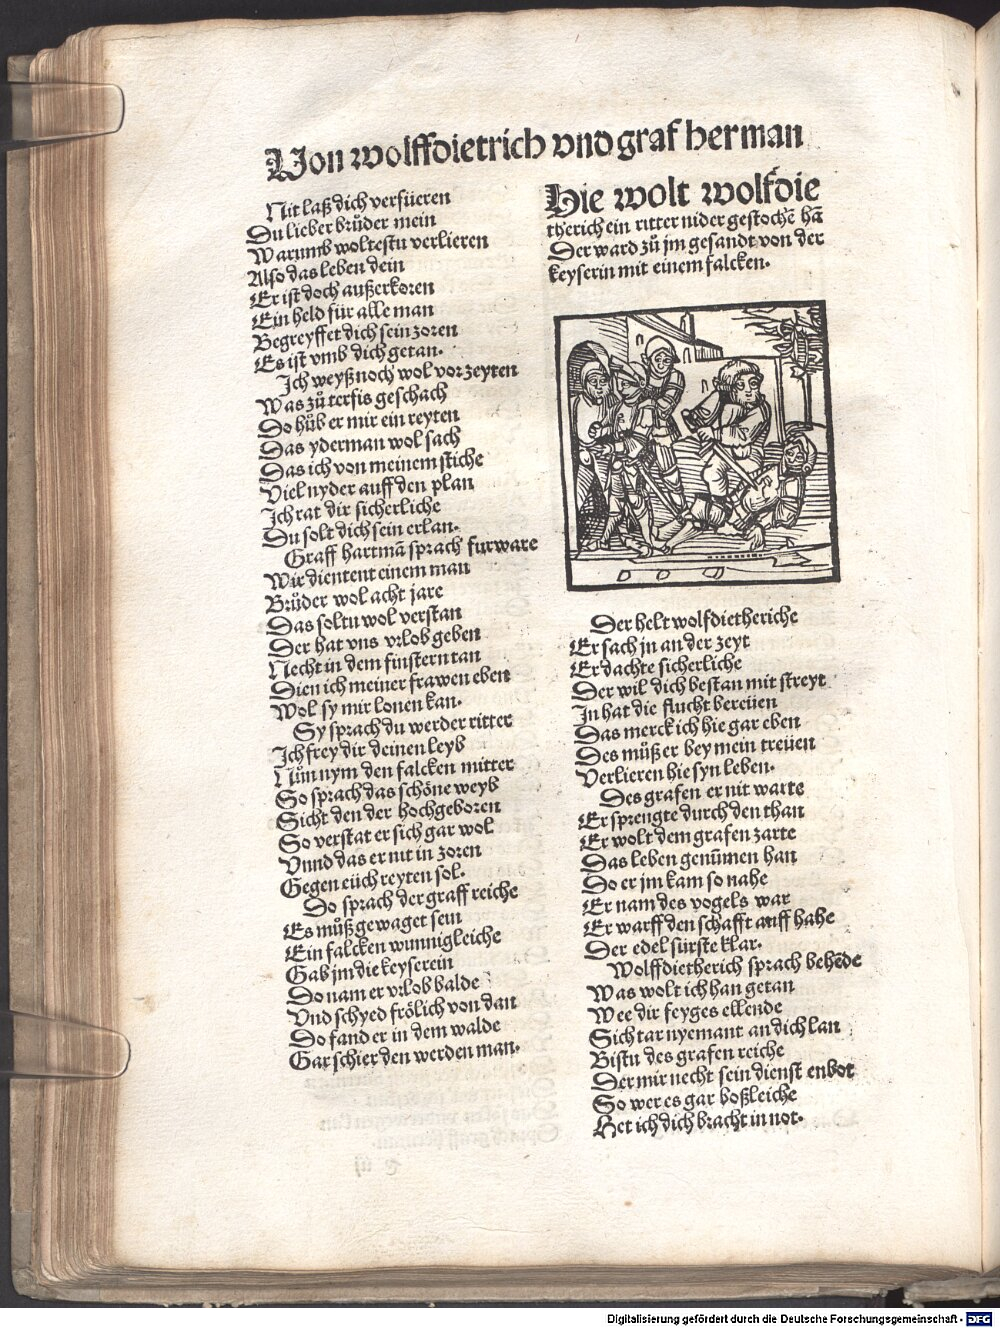 Von wolffdietrich vnd graf herman
Nit laß dich verfüeren
Du lieber brůder mein
Warumb woltestu verlieren
Also das leben dein
Er ist doch außerkoren
Ein held für alle man
Begreyffet dich sein zoren
Es ist vmb dich getan.
Ich weyß noch wol vor zeyten
Was zů tersis geschach
Do hůb er mir ein reyten
Das yderman wol sach
Das ich von meinem stiche
Viel nyder auff den plan
Ich rat dir sicherliche
Du solt dich sein erlan.
Graff hartmā sprach furware
Wir dientent einem man
Brůder wol acht jare
Das soltu wol verstan
Der hat vns vrlob geben
Necht in dem finstern tan
Dien ich meiner frawen eben
Wol sy mir lonen kan.
Sy sprach du werder ritter
Ich frey dir deinen leyb
Nům nym den falcken mitter
So sprach das schöne weyb
Sicht den der hochgeboren
So verstat er sich gar wol
Vnnd das er nit in zoren
Gegen eüch reyten sol.
Do sprach der graff reiche
Es můß gewaget sein
Ein falcken wunnigleiche
Gab jm die keyserein
Do nam er vrlob balde
Vnd schyed frölich von dan
Do fand er in dem walde
Gar schier den werden man.
Hie wolt wolfdie
therich ein ritter nider gestochē hā
Der ward zů jm gesandt von der
keyserin mit einem falcken.
Der helt wolfdietheriche
Er sach jn an der zeyt
Er dachte sicherliche
Der wil dich bestan mit streyt
In hat die flucht bereüen
Das merck ich hie gar eben
Des můß er bey mein treüen
Verlieren hie syn leben.
Des grafen er nit warte
Er sprengte durch den than
Er wolt dem grafen zarte
Das leben genūmen han
Do er jm kam so nahe
Er nam des vogels war
Er warff den schafft auff habe
Der edel fürste klar.
Wolffdietherich sprach behēde
Was wolt ich han getan
Wee dir feyges ellende
Sich tar nyemant an dich lan
Bistu des grafen reiche
Der mir necht sein dienst enbot
So wer es gar boßleiche
Het ich dich bracht in not.
Digitalisierung gefördert durch die Deutsche Forschungsgemeinschaft - DFG